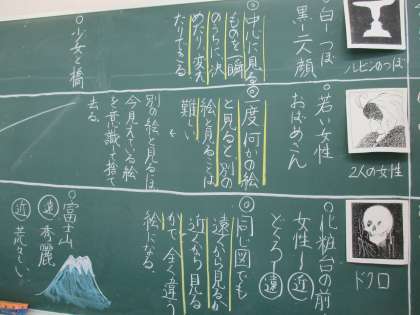 ルビンのつぼ
・白ーつぼ
黒ー二人顔
中心に見る
ものを一瞬
のうちに決
めたり、変え
たりできる
・少女と橋
2人の女性
・若い女性
おばあさん
一度何かの絵
と見ると別の
絵と見ることは
難しい
↓
別の絵と見るには
今見えている絵
を意識して捨て
去る
ドクロ
・化粧台の前
女性ー近
どくろー遠
同じ図でも
遠くから見るか
近くから見る
かで全く違う
絵になる。
・富士山
遠 秀麗
近 荒々しい